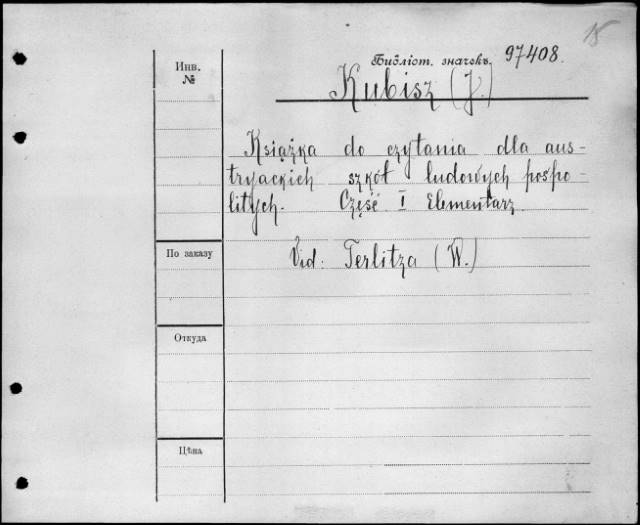 18
Библіот. значекъ 97408.
Инв.
№
Kubisz (J.)
Książka do czytania dla aus-
tryackich szkół ludowych pospo-
litych. Część I Elementarz.
По заказу
Vid: Terlitza (W.)
Откуда
Цѣна